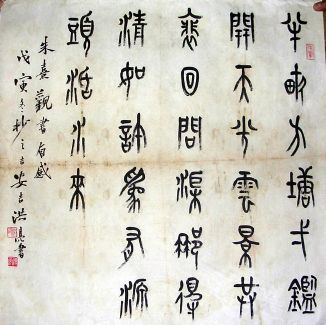 半畝方塘弌鑑
開天光雲景共
裵回問渠那得
清如許爲有源
頭活水來
朱熹觀書有感
戊寅冬杪之吉安吉洪亮書